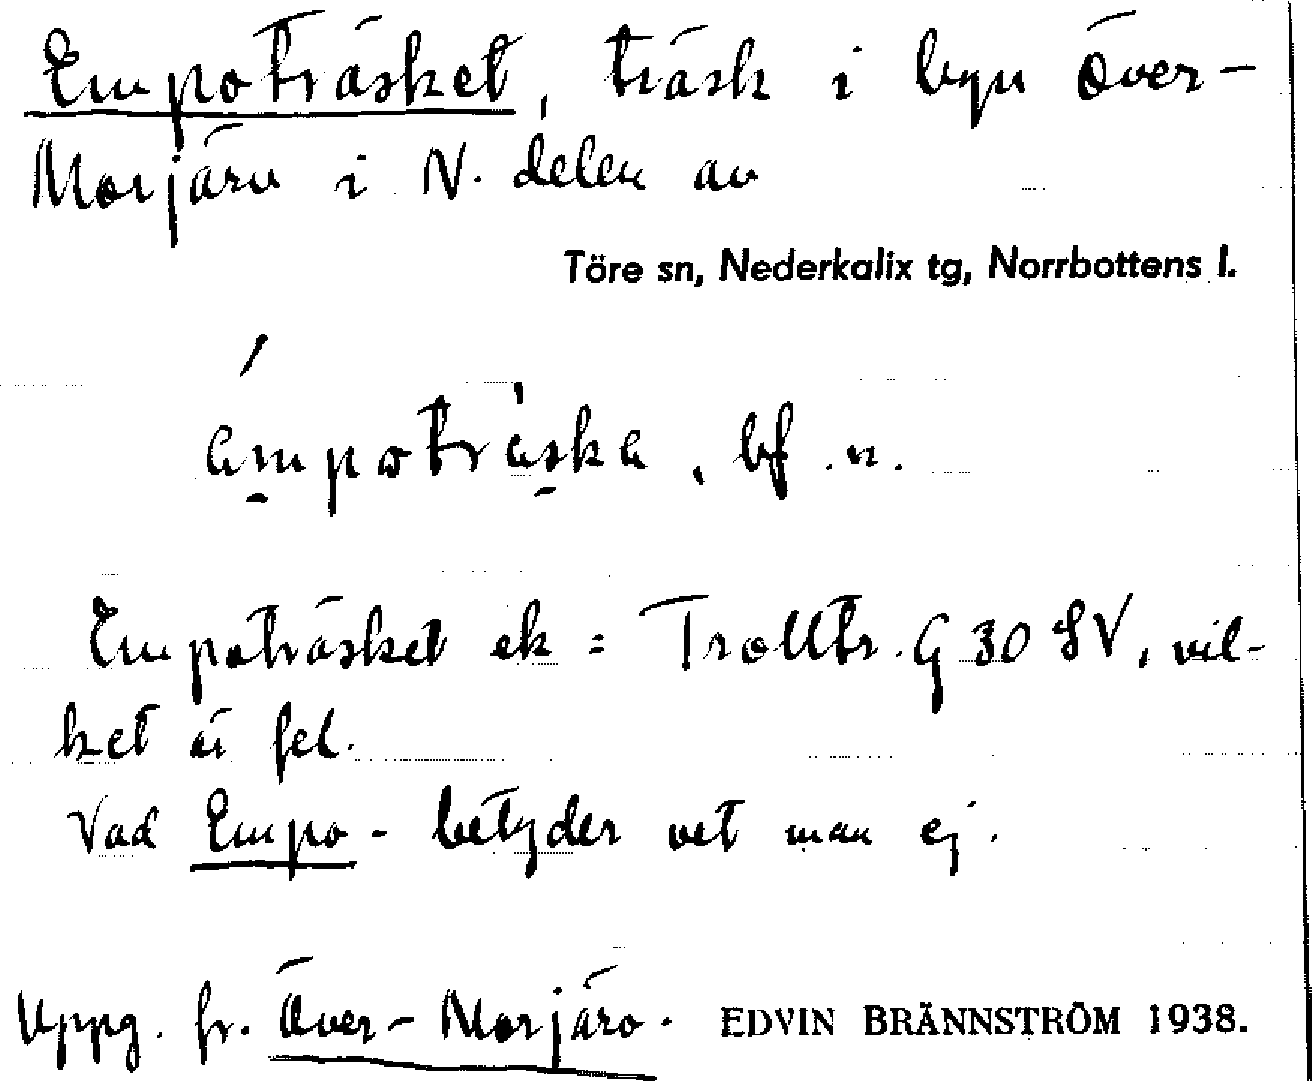 Empoträsket, träsk i byn Över-
Morjärv i N. delen av
Töre sn, Nederkalix tg, Norrbottens l.
ämpoträska, bf. n.
Empoträsket ek = Trolltr. G 30 SV, vil-
ket är fel.
Vad Empo- betyder vet man ej.
Uppg. fr. Över-Morjärv. EDVIN BRÄNNSTRÖM 1938.